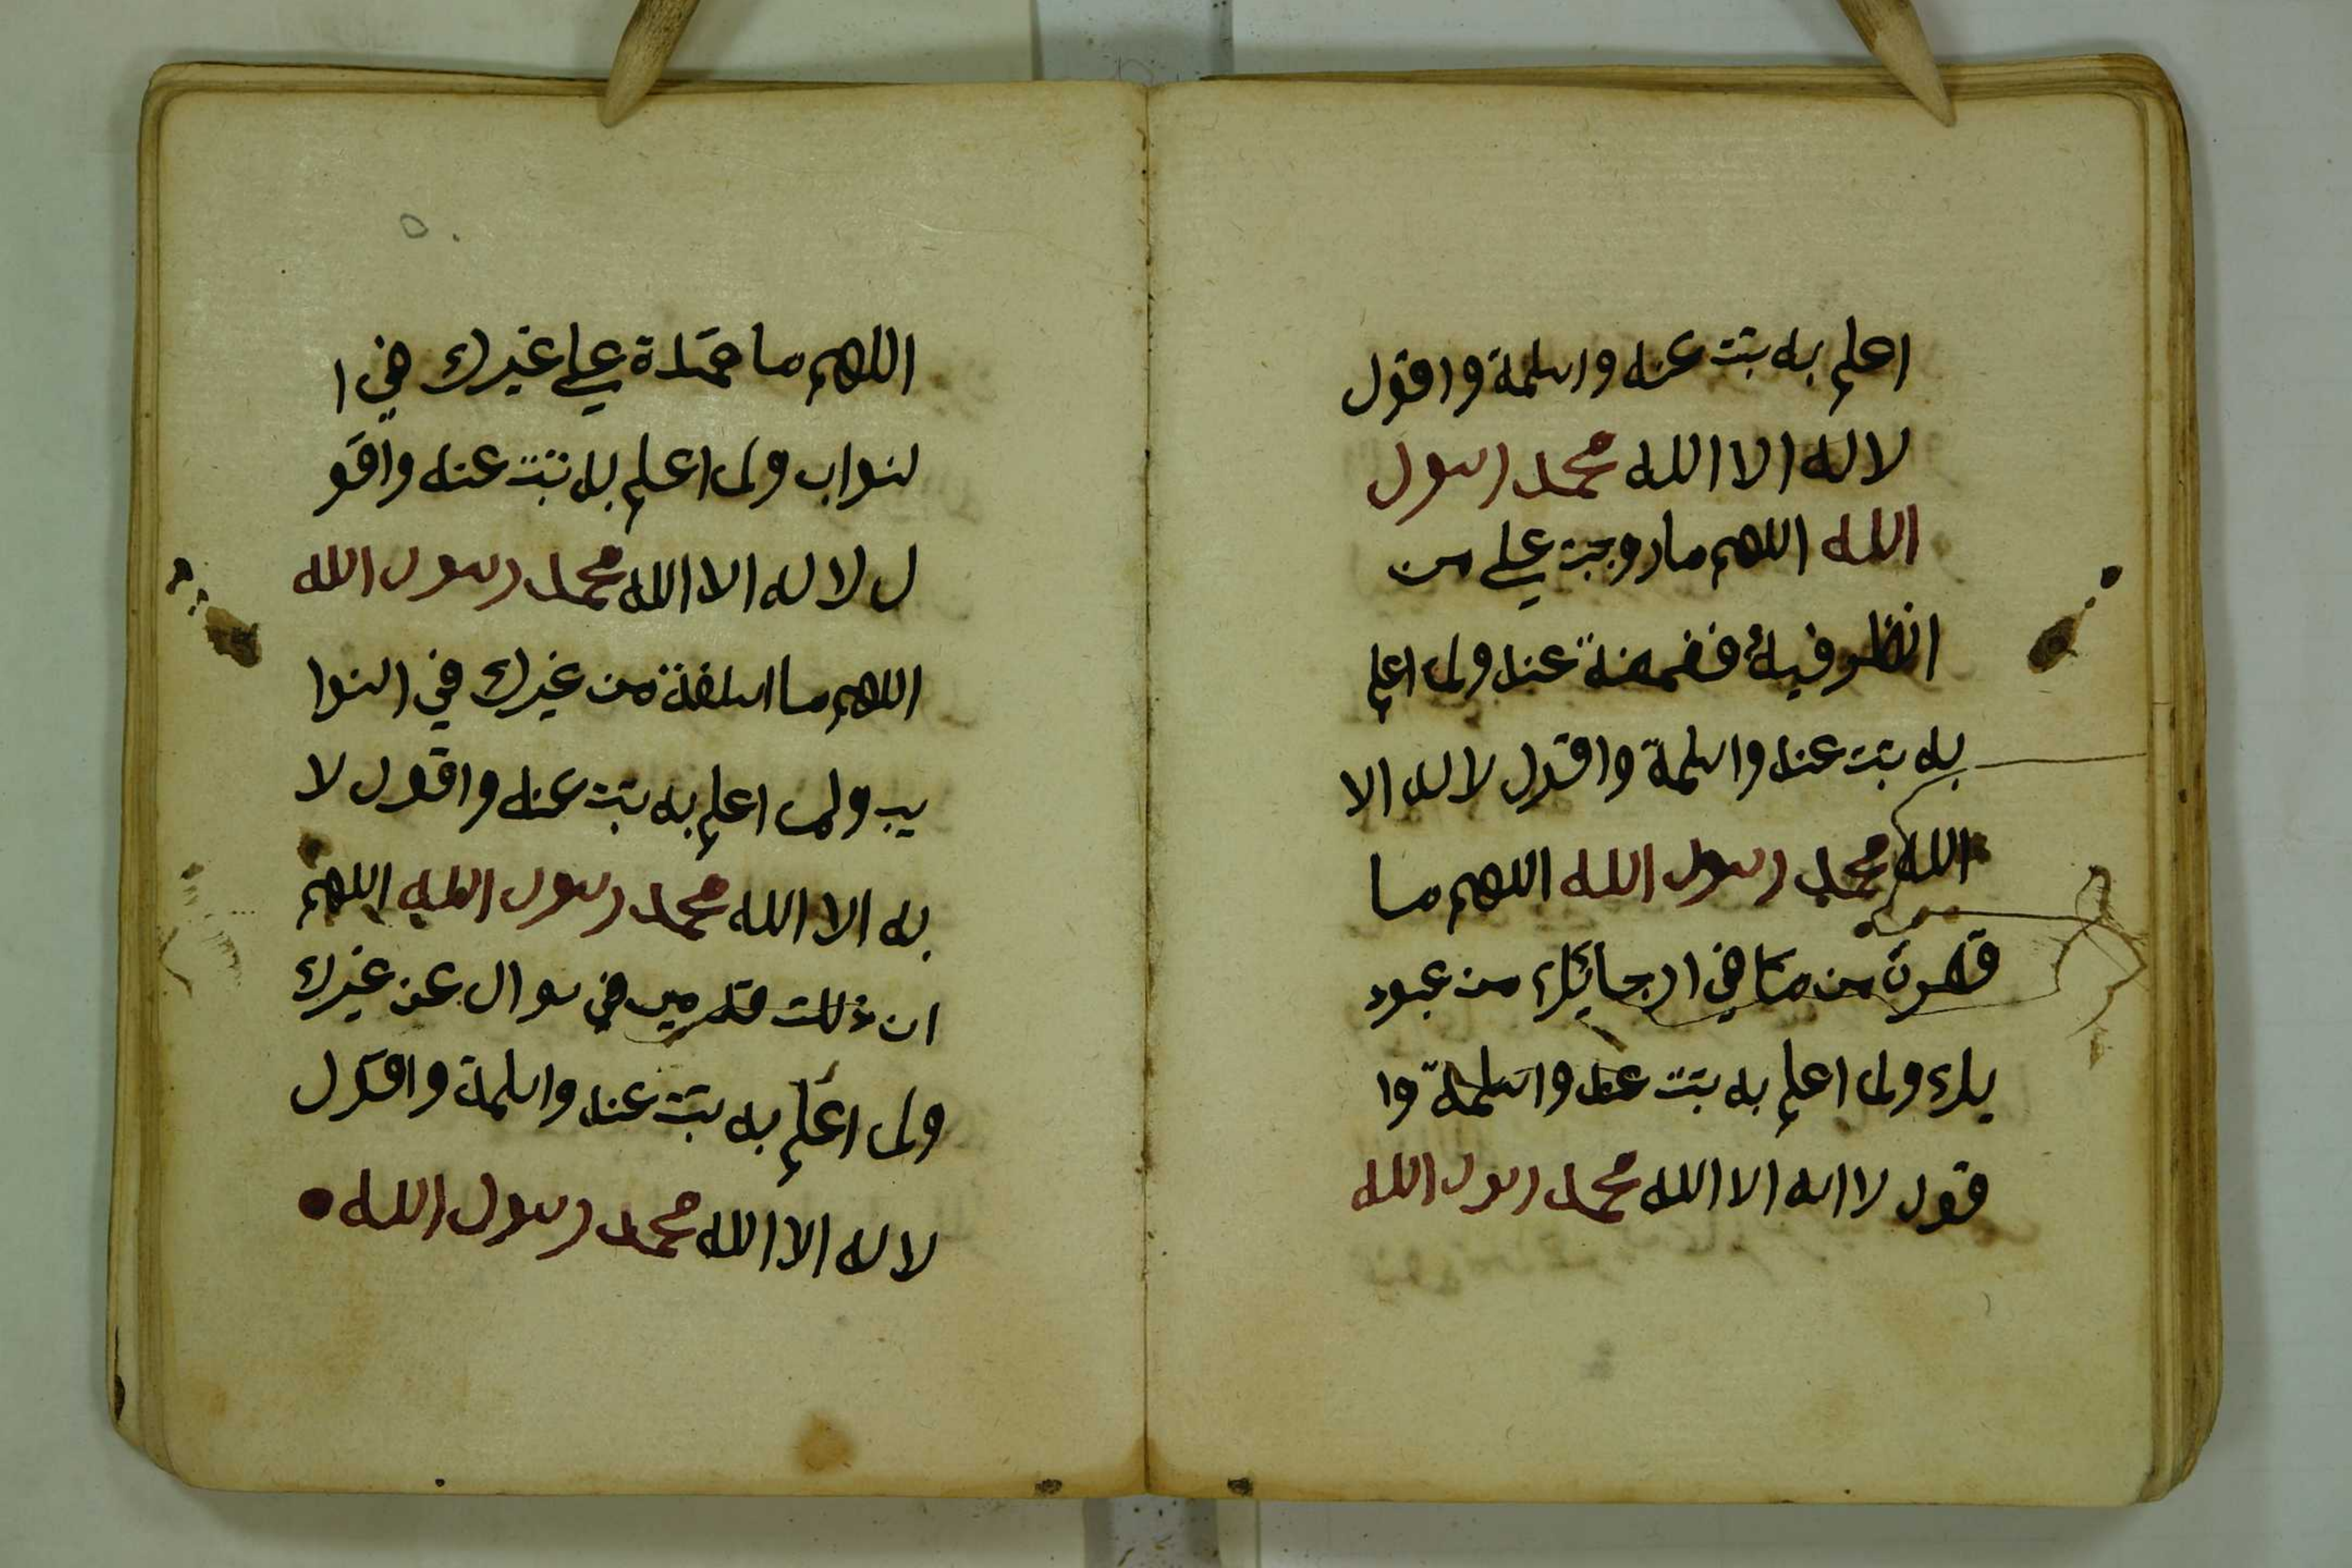 اعلم به تبت عنه واسلمة واقول
لا له الا الله محمد رسول
الله اللهم ما وجبت علي من
انظر فيه فغمضة عنه ولم اعلم
به تبت عنه واسلمة واقول لا له الا
الله محمد رسول الله اللهم ما
قصرت من ما في ارجائك من عبود
يك ولم اعلم به تبت عنه واسلمة وا
قول لا اله الا الله محمد رسول الله
٥
اللهم ما عمدة علي غيرك في ا
لنواب ولم اعلم به تبت عنه واقو
ل لا له الا الله محمد رسول الله
اللهم ما اسلفة من غيرك في النوا
يب ولم اعلم به تبت عنه واقول لا
له الا الله محمد رسول الله اللهم
ان ذلت قدمي في سوال عن غيرك
ولم اعلم به تبت عنه واسلمة واقول
لا له الا الله محمد رسول الله